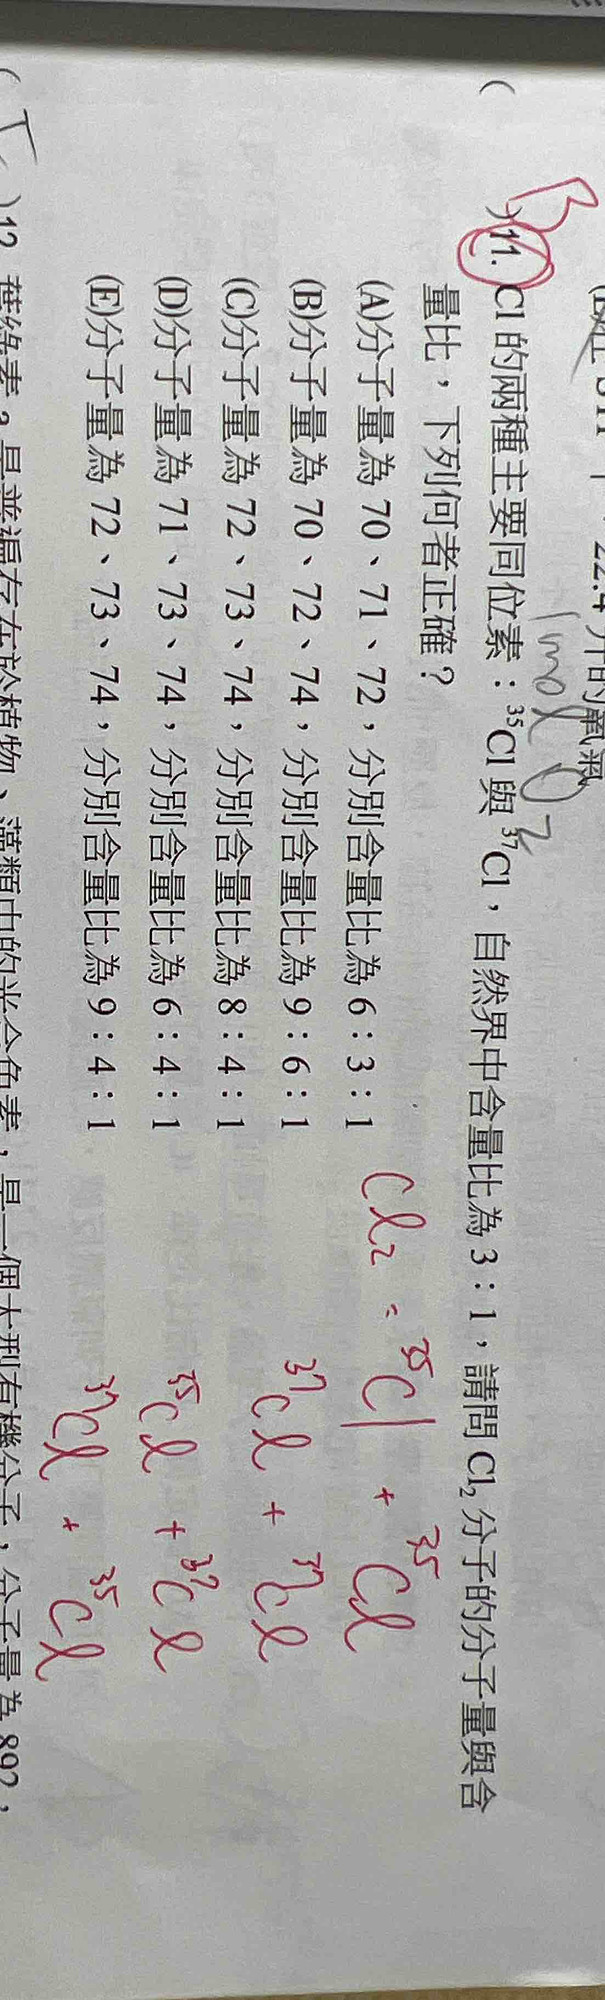 22.4 升的氧氣
1mol O2
( B )11. Cl 的兩種主要同位素：³⁵Cl 與 ³⁷Cl，自然界中含量比為 3：1，請問 Cl₂ 分子的分子量與含
量比，下列何者正確？
(A)分子量為 70、71、72，分別含量比為 6：3：1
(B)分子量為 70、72、74，分別含量比為 9：6：1
(C)分子量為 72、73、74，分別含量比為 8：4：1
(D)分子量為 71、73、74，分別含量比為 6：4：1
(E)分子量為 72、73、74，分別含量比為 9：4：1
Cl₂ = ³⁵Cl + ³⁵Cl
³⁷Cl + ³⁷Cl
³⁵Cl + ³⁷Cl
³⁷Cl + ³⁵Cl
)12. 葉綠素 a 是普遍存在於植物、藻類中的光合色素，是一個大型有機分子，分子量為 892，